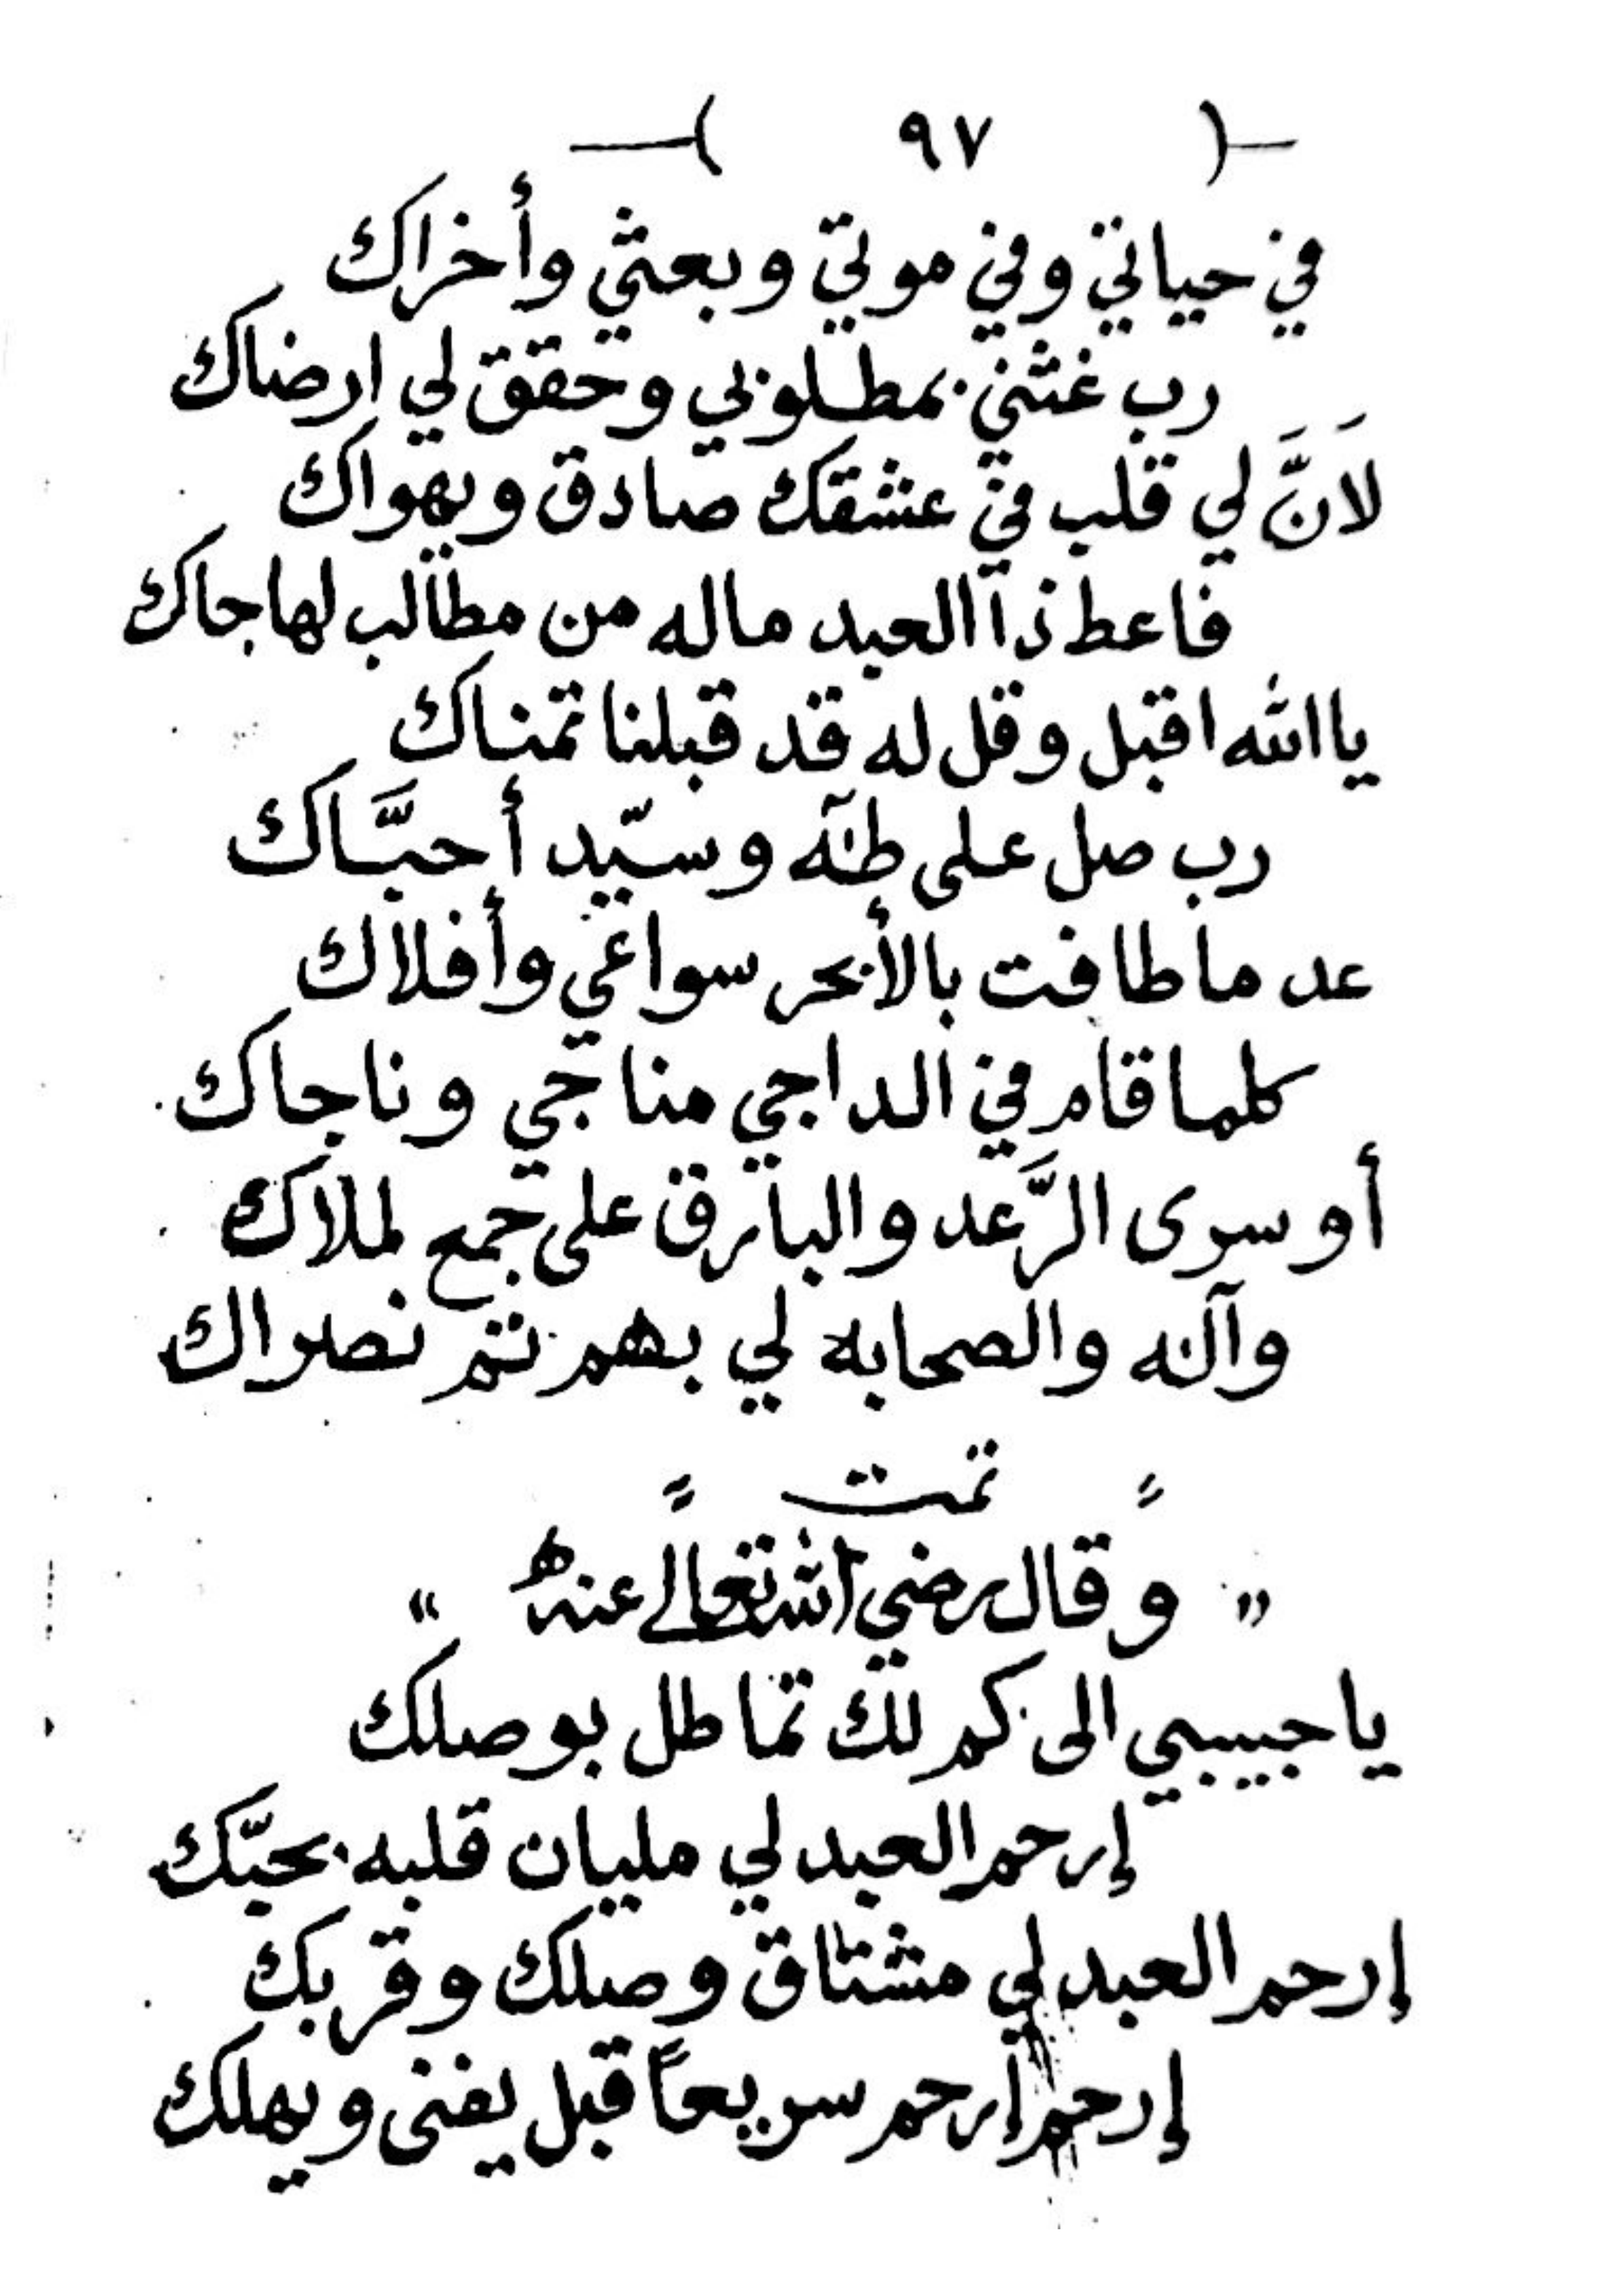 ( ٩٧ )
في حياتي وفي موتي وبعثي وأخراك
رب غثني بمطلوبي وحقق لي ارضاك
لاَنَّ لي قلب في عشقك صادق ويهواك
فاعط ذا العبد ماله من مطالب لها جاك
يا الله اقبل وقل له قد قبلنا تمناك
رب صل على طه وسيّد أحبَّاك
عد ما طافت بالأبحر سواعي وأفلاك
كلما قام في الداجي مناجي وناجاك
أو سرى الرَّعد والبارق على جمع لملاك
وآله والصحابه لي بهم تم نصراك
تمت
" وقال رضي الله تعالى عنه "
يا حبيبي الى كم لك تماطل بوصلك
إرحم العبد لي مليان قلبه بحبّك
إرحم العبد لي مشتاق وصلك وقربك
إرحم إرحم سريعاً قبل يفنى ويهلك